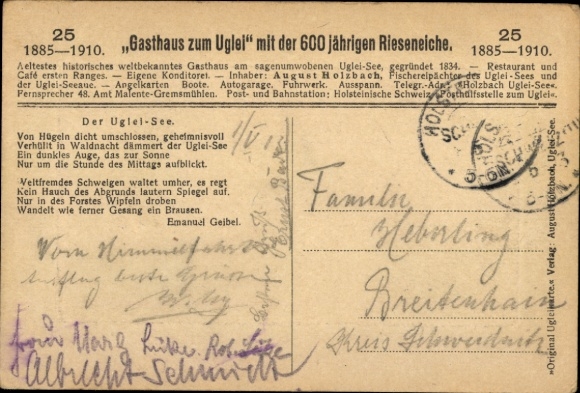 25
1885-1910.
„Gasthaus zum Uglei" mit der 600 jährigen Rieseneiche.
25
1885-1910.
Aeltestes historisches weltbekanntes Gasthaus am sagenumwobenen Uglei-See, gegründet 1834. — Restaurant und
Café ersten Ranges. — Eigene Konditorei. — Inhaber: August Holzbach, Fischereipächter des Uglei-Sees und
der Ugleiseeaue. — Angelkarten Boote. Autogarage. Fuhrwerk. Ausspann. Telegr.-Adr.: »Holzbach Uglei-See«.
Fernsprecher 48. Amt Malente-Gremsmühlen. Post- und Bahnstation: Holsteinische Schweiz (Posthülfsstelle zum Uglei).
Der Uglei-See.
Von Hügeln dicht umschlossen, geheimnisvoll
Verhüllt in Waldnacht dämmert der Uglei-See
Ein dunkles Auge, das zur Sonne
Nur um die Stunde des Mittags aufblickt.
Weltfremdes Schweigen waltet umher, es regt
Kein Hauch des Abgrunds lautern Spiegel auf.
Nur in des Forstes Wipfeln droben
Wandelt wie ferner Gesang ein Brausen.
Emanuel Geibel.
Vom Himmelfahrts
beste Grüsse
Albrecht Schmidt
Familie
Heberling
Breitenhain
Kreis Schweidnitz
»Original Ugleikarte.« Verlag: August Holzbach, Uglei-See.